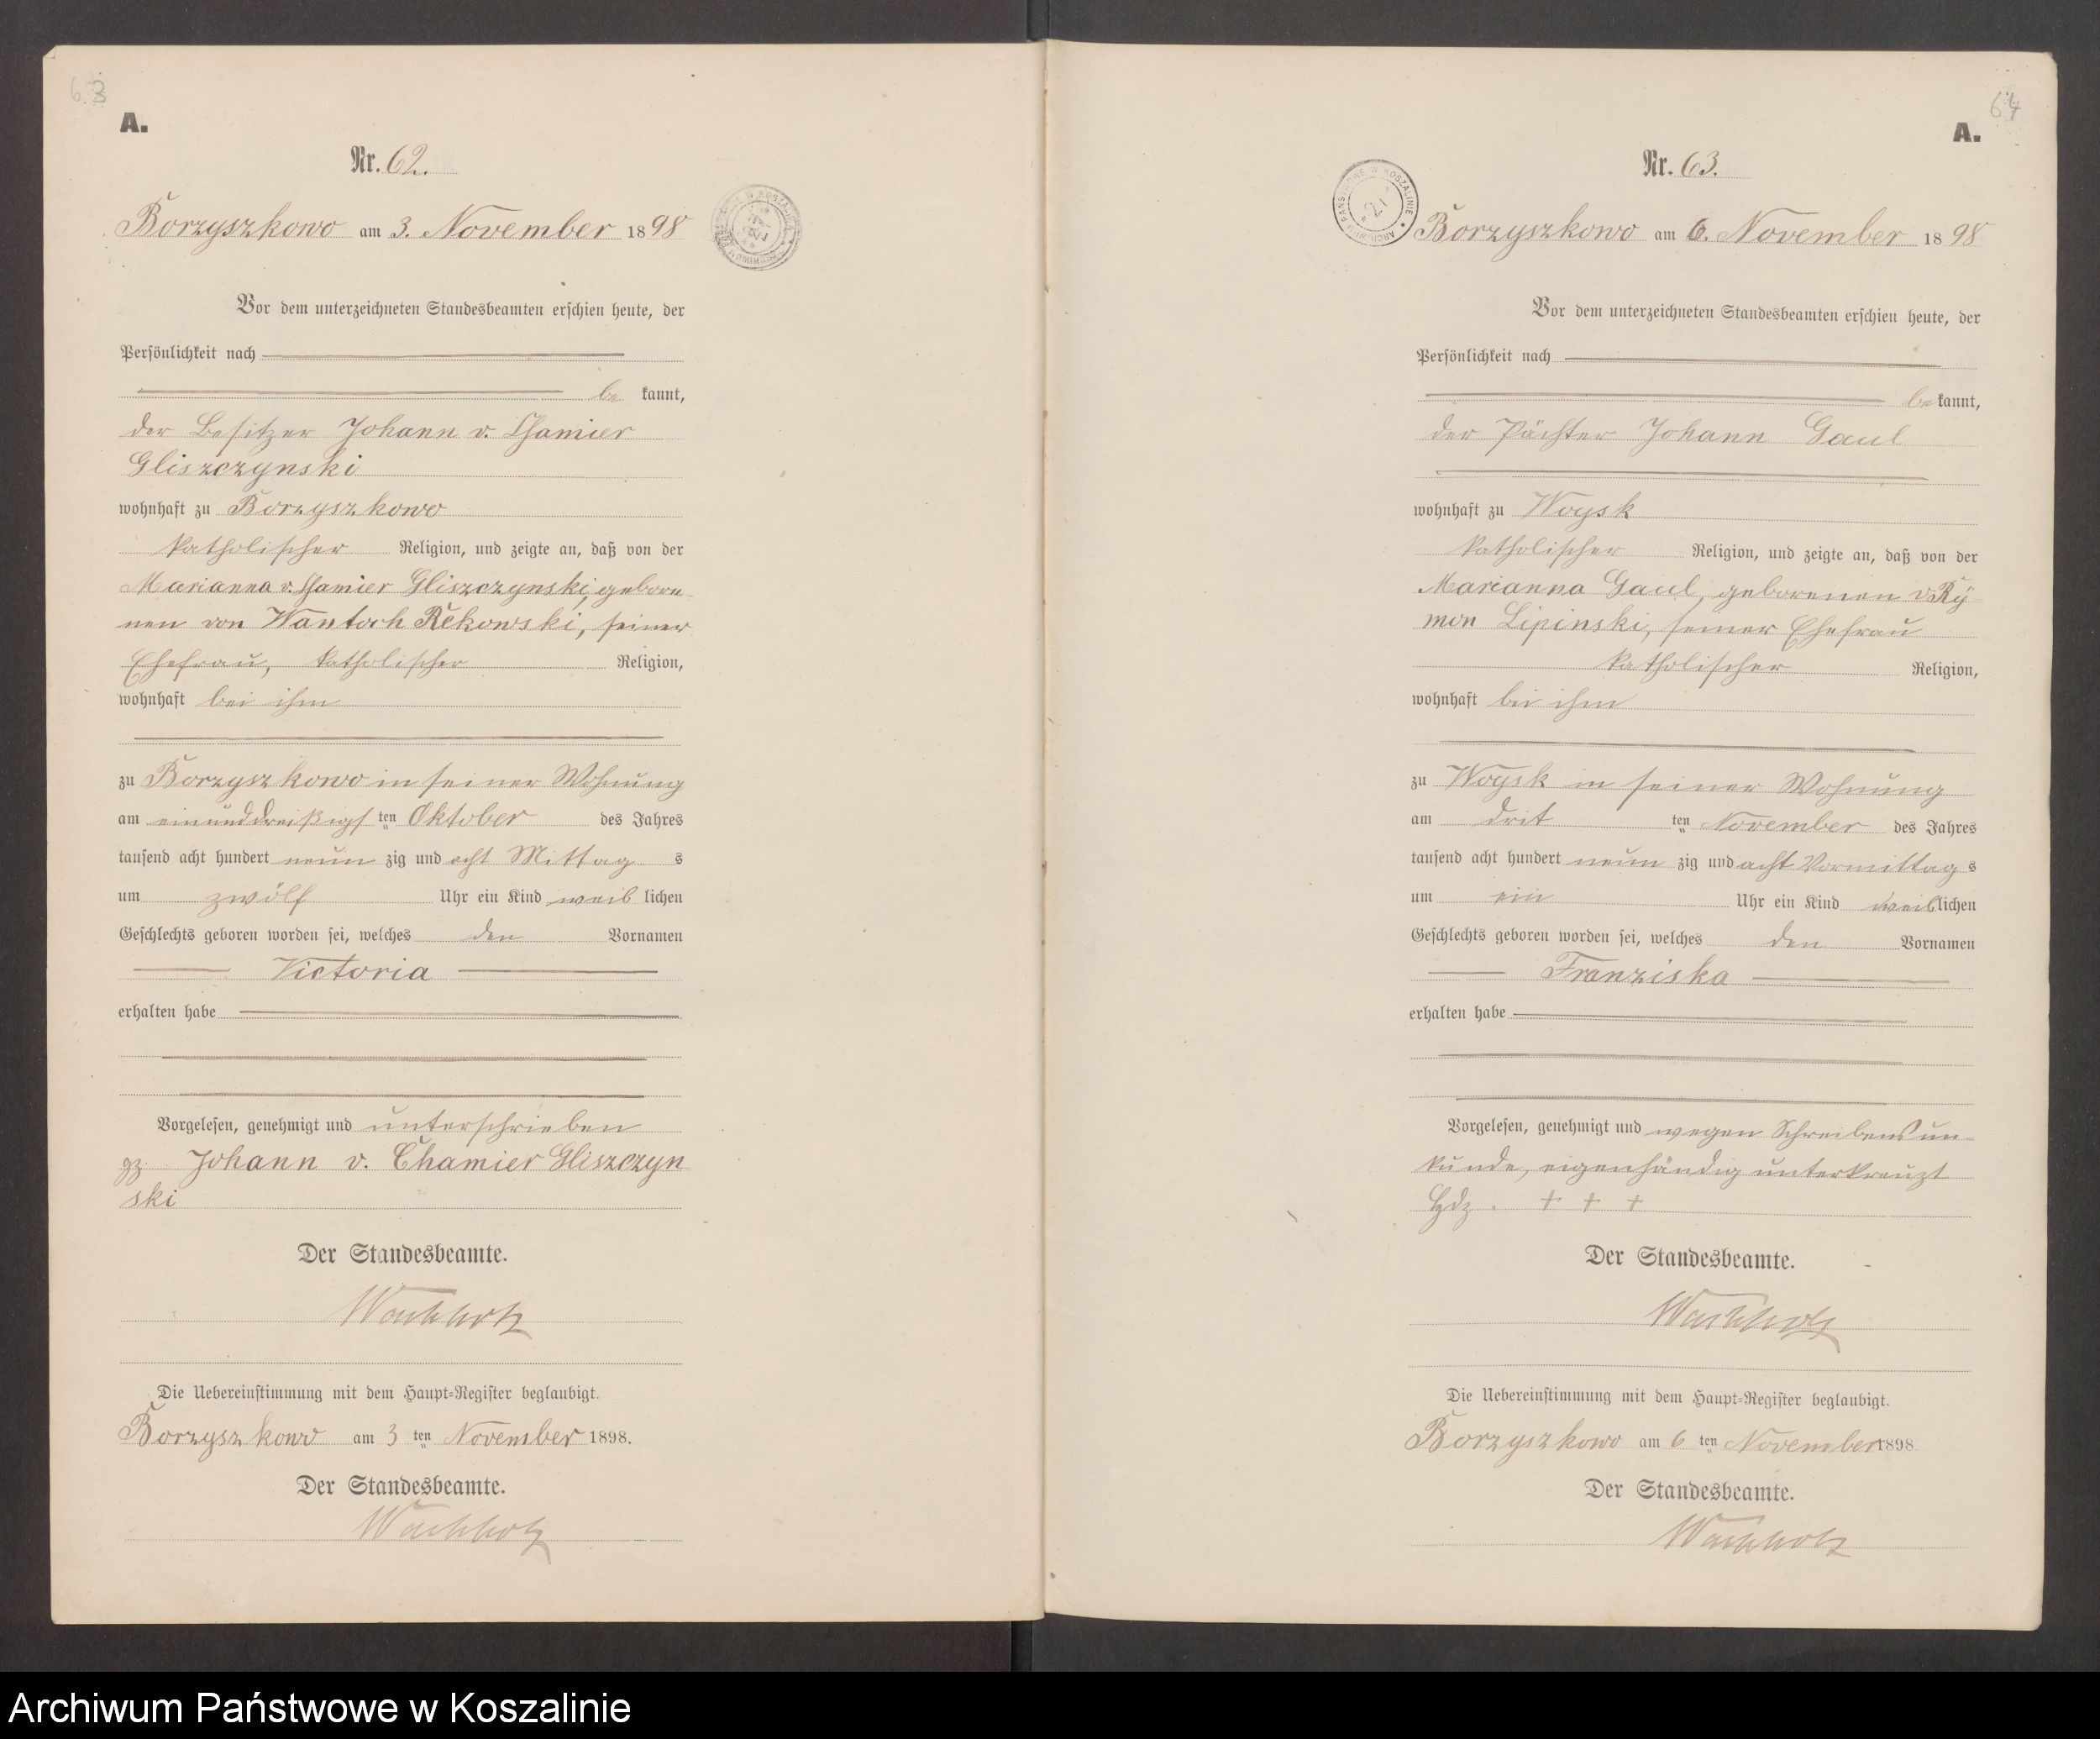 63
A.
Nr. 62.
Borzyszkowo am 3. November 1898
Vor dem unterzeichneten Standesbeamten erschien heute, der
Persönlichkeit nach
be kannt,
der Besitzer Johann v. Chamier
Gliszczynski
wohnhaft zu Borzyszkowo
katholischer Religion, und zeigte an, daß von der
Marianna v. Chamier Gliszczynski, gebore-
nen von Wantoch Rekowski, seiner
Ehefrau, katholischer Religion,
wohnhaft bei ihm
zu Borzyszkowo in seiner Wohnung
am einunddreißigs ten Oktober des Jahres
tausend acht hundert neun zig und acht Mittag s
um zwölf Uhr ein Kind weib lichen
Geschlechts geboren worden sei, welches den Vornamen
Victoria
erhalten habe
Vorgelesen, genehmigt und unterschrieben
gz. Johann v. Chamier Gliszczyn
ski
Der Standesbeamte.
Wachholz
Die Uebereinstimmung mit dem Haupt-Register beglaubigt.
Borzyszkowo am 3 ten November 1898.
Der Standesbeamte.
Wachholz
64
A.
Nr. 63.
ARCHIWUM PAŃSTWOWE W KOSZALINIE
21
Borzyszkowo am 6. November 1898
Vor dem unterzeichneten Standesbeamten erschien heute, der
Persönlichkeit nach
be kannt,
der Pächter Johann Gaul
wohnhaft zu Woysk
katholischer Religion, und zeigte an, daß von der
Marianna Gaul, geborenen v. Ry
mon Lipinski, seiner Ehefrau
katholischer Religion,
wohnhaft bei ihm
zu Woysk in seiner Wohnung
am drit ten November des Jahres
tausend acht hundert neun zig und acht Vormittag s
um ein Uhr ein Kind weib lichen
Geschlechts geboren worden sei, welches den Vornamen
Franziska
erhalten habe
Vorgelesen, genehmigt und wegen Schreibens un-
kunde, eigenhändig unterkreuzt
Hdz. + + +
Der Standesbeamte.
Wachholz
Die Uebereinstimmung mit dem Haupt-Register beglaubigt.
Borzyszkowo am 6 ten November 1898
Der Standesbeamte.
Wachholz
Archiwum Państwowe w Koszalinie